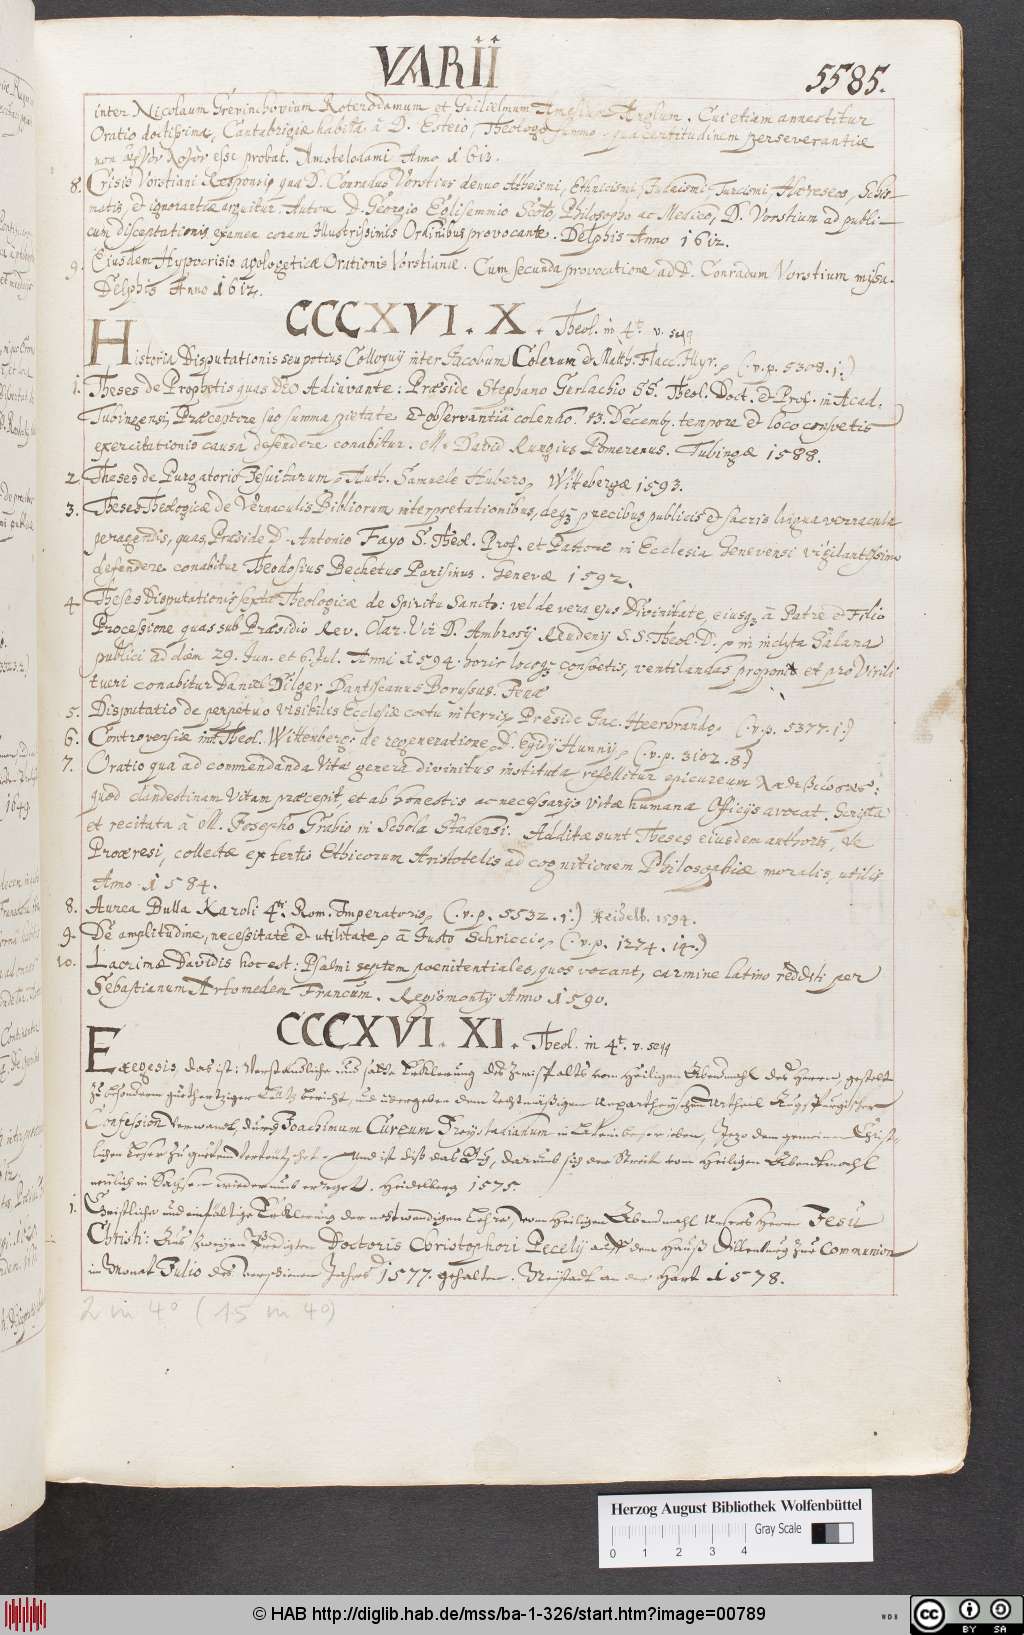 VARII
5585.
inter Nicolaum Grevinchovium Roterodamum et Guilielmum Amesium Anglum. Cui etiam annectitur
Oratio doctissima, Cantabrigiæ habita à D. Esteio, Theologo summo, qua certitudinem perseverantiæ
non esse probat. Amstelodami Anno 1613.
8. Crisis Vorstiani Responsi, qua D. Conradus Vorstius denuo Atheismi, Ethnicismi, Judaismi, Turcismi, Hæreseos, Schis-
matis, et ignorantiæ arguitur. Autore D. Georgio Eglisemmio Scoto, Philosopho ac Medico, D. Vorstium ad publi-
cum disceptationis examen coram Illustrissimis Ordinibus provocante. Delphis Anno 1612.
9. Eiusdem Hypocrisis apologeticæ Orationis Vorstianæ. Cum secunda provocatione ad D. Conradum Vorstium missa.
Delphis Anno 1612.
CCCXVI. X. Theol. in 4t. v. seqq
Historia Disputationis seu potius Colloquij inter Jacobum Colerum et Matth. Flacc. Illyr. (.v.p. 5308. 1.)
1. Theses de Prophetis quas DEO Adiuvante: Præside Stephano Gerlachio SS. Theol. Doct. et Prof. in Acad.
Tubingensi, Præceptore suo summa pietate et observantia colendo. 13. Decemb. tempore et loco consuetis
exercitationis causa defendere conabitur. M. David Rungius Pomeranus. Tubingæ 1588.
2. Theses de Purgatorio Jesuitarum Auth. Samuele Hubero, Wittebergæ 1593.
3. Theses Theologicæ de Vernaculis Bibliorum interpretationibus, deq3 precibus publicis et sacris lingua vernacula
peragendis, quas, Præside D. Antonio Fayo S. Theol. Prof. et Pastore in Ecclesia Genevensi vigilantissimo
defendere conabitur Theodosius Bechetus Parisinus. Genevæ 1592.
4. Theses Disputationis sextæ Theologicæ de Spiritu Sancto: vel de vera ejus Divinitate, eiusq3 à Patre et Filio
Processione quas sub Præsidio Rev. Clar. Viri D. Ambrosij Reudenij S.S. Theol. D. p in inclyta Salana
publici ad diem 29. Jun. et 6. Jul. Anni 1594. horis locoq3 consuetis, ventilandas proponit et pro Virili
tueri conabitur Daniel Dilger Dantiscanus Borussus. Jenæ
5. Disputatio de perpetuo visibilis Ecclesiæ coetu in terris, Præside Jac. Heerbrando, (.v.p. 5377. 1.)
6. Controversiæ int. Theol. Wittenberg. de regeneratione et D. Egidij Hunnij, (.v.p. 3102. 8.)
7. Oratio qua ad commendanda Vitæ genera divinitus instituta refellitur epicureum
quod clandestinam Vitam præcepit, et ab honestis ac necessarijs vitæ humanæ Officijs avocat. Scripta
et recitata à M. Josepho Grabio in Schola Stadensi. Additæ sunt Theses eiusdem authoris, de
Proæresi, collectæ ex tertio Ethicorum Aristotelis ad cognitionem Philosophiæ moralis, utilis
Anno 1584.
8. Aurea Bulla Karoli 4ti. Rom. Imperatoris, (.v.p. 5532. 1.) Heidelb. 1594.
9. De amplitudine, necessitate et utilitate, à Justo Schriccio, (.v.p. 1274. 14.)
10. Lacrimæ Davidis hoc est: Psalmi septem poenitentiales, quos vocant, carmine latino redditi per
Sebastianum Artomedem Francum. Regiomontij Anno 1590.
CCCXVI. XI. Theol. in 4t. v. seqq
Exegesis, das ist: Verstendliche und satte Erklerung des Zwispalts vom Heiligen Abendmahl des Herren, gestelt
zu besonderem guthertziger Leut bericht, und ubergeben dem rechtmäßigen unpartheyschen urtheil Augspurgischer
Confession verwandt, durch Joachimum Cureum Freystadianum in Latein beschrieben, Jezo dem gemeinen Christ-
lichen Leser zu gutem verteutschet. Und ist diß das Buch, darumb sich der Streit vom Heiligen Abendmahl
newlich in Sachsen wiederumb erreget. Heidelberg 1575.
1. Christliche und einfältige Erklerung der notwendigen Lehre, vom Heiligen Abendmahl unsers Herrn Jesu
Christi: Aus zweyen Predigten Doctoris Christophori Pecelij auff dem Hauß Dillenburg zur Communion
im Monat Julio des verschienen Jahrs 1577. gehalten. Neustadt an der Hart 1578.
2 in 4° (15 in 4°)
Herzog August Bibliothek Wolfenbüttel
Gray Scale
0 1 2 3 4
© HAB http://diglib.hab.de/mss/ba-1-326/start.htm?image=00789
WDB
cc BY SA